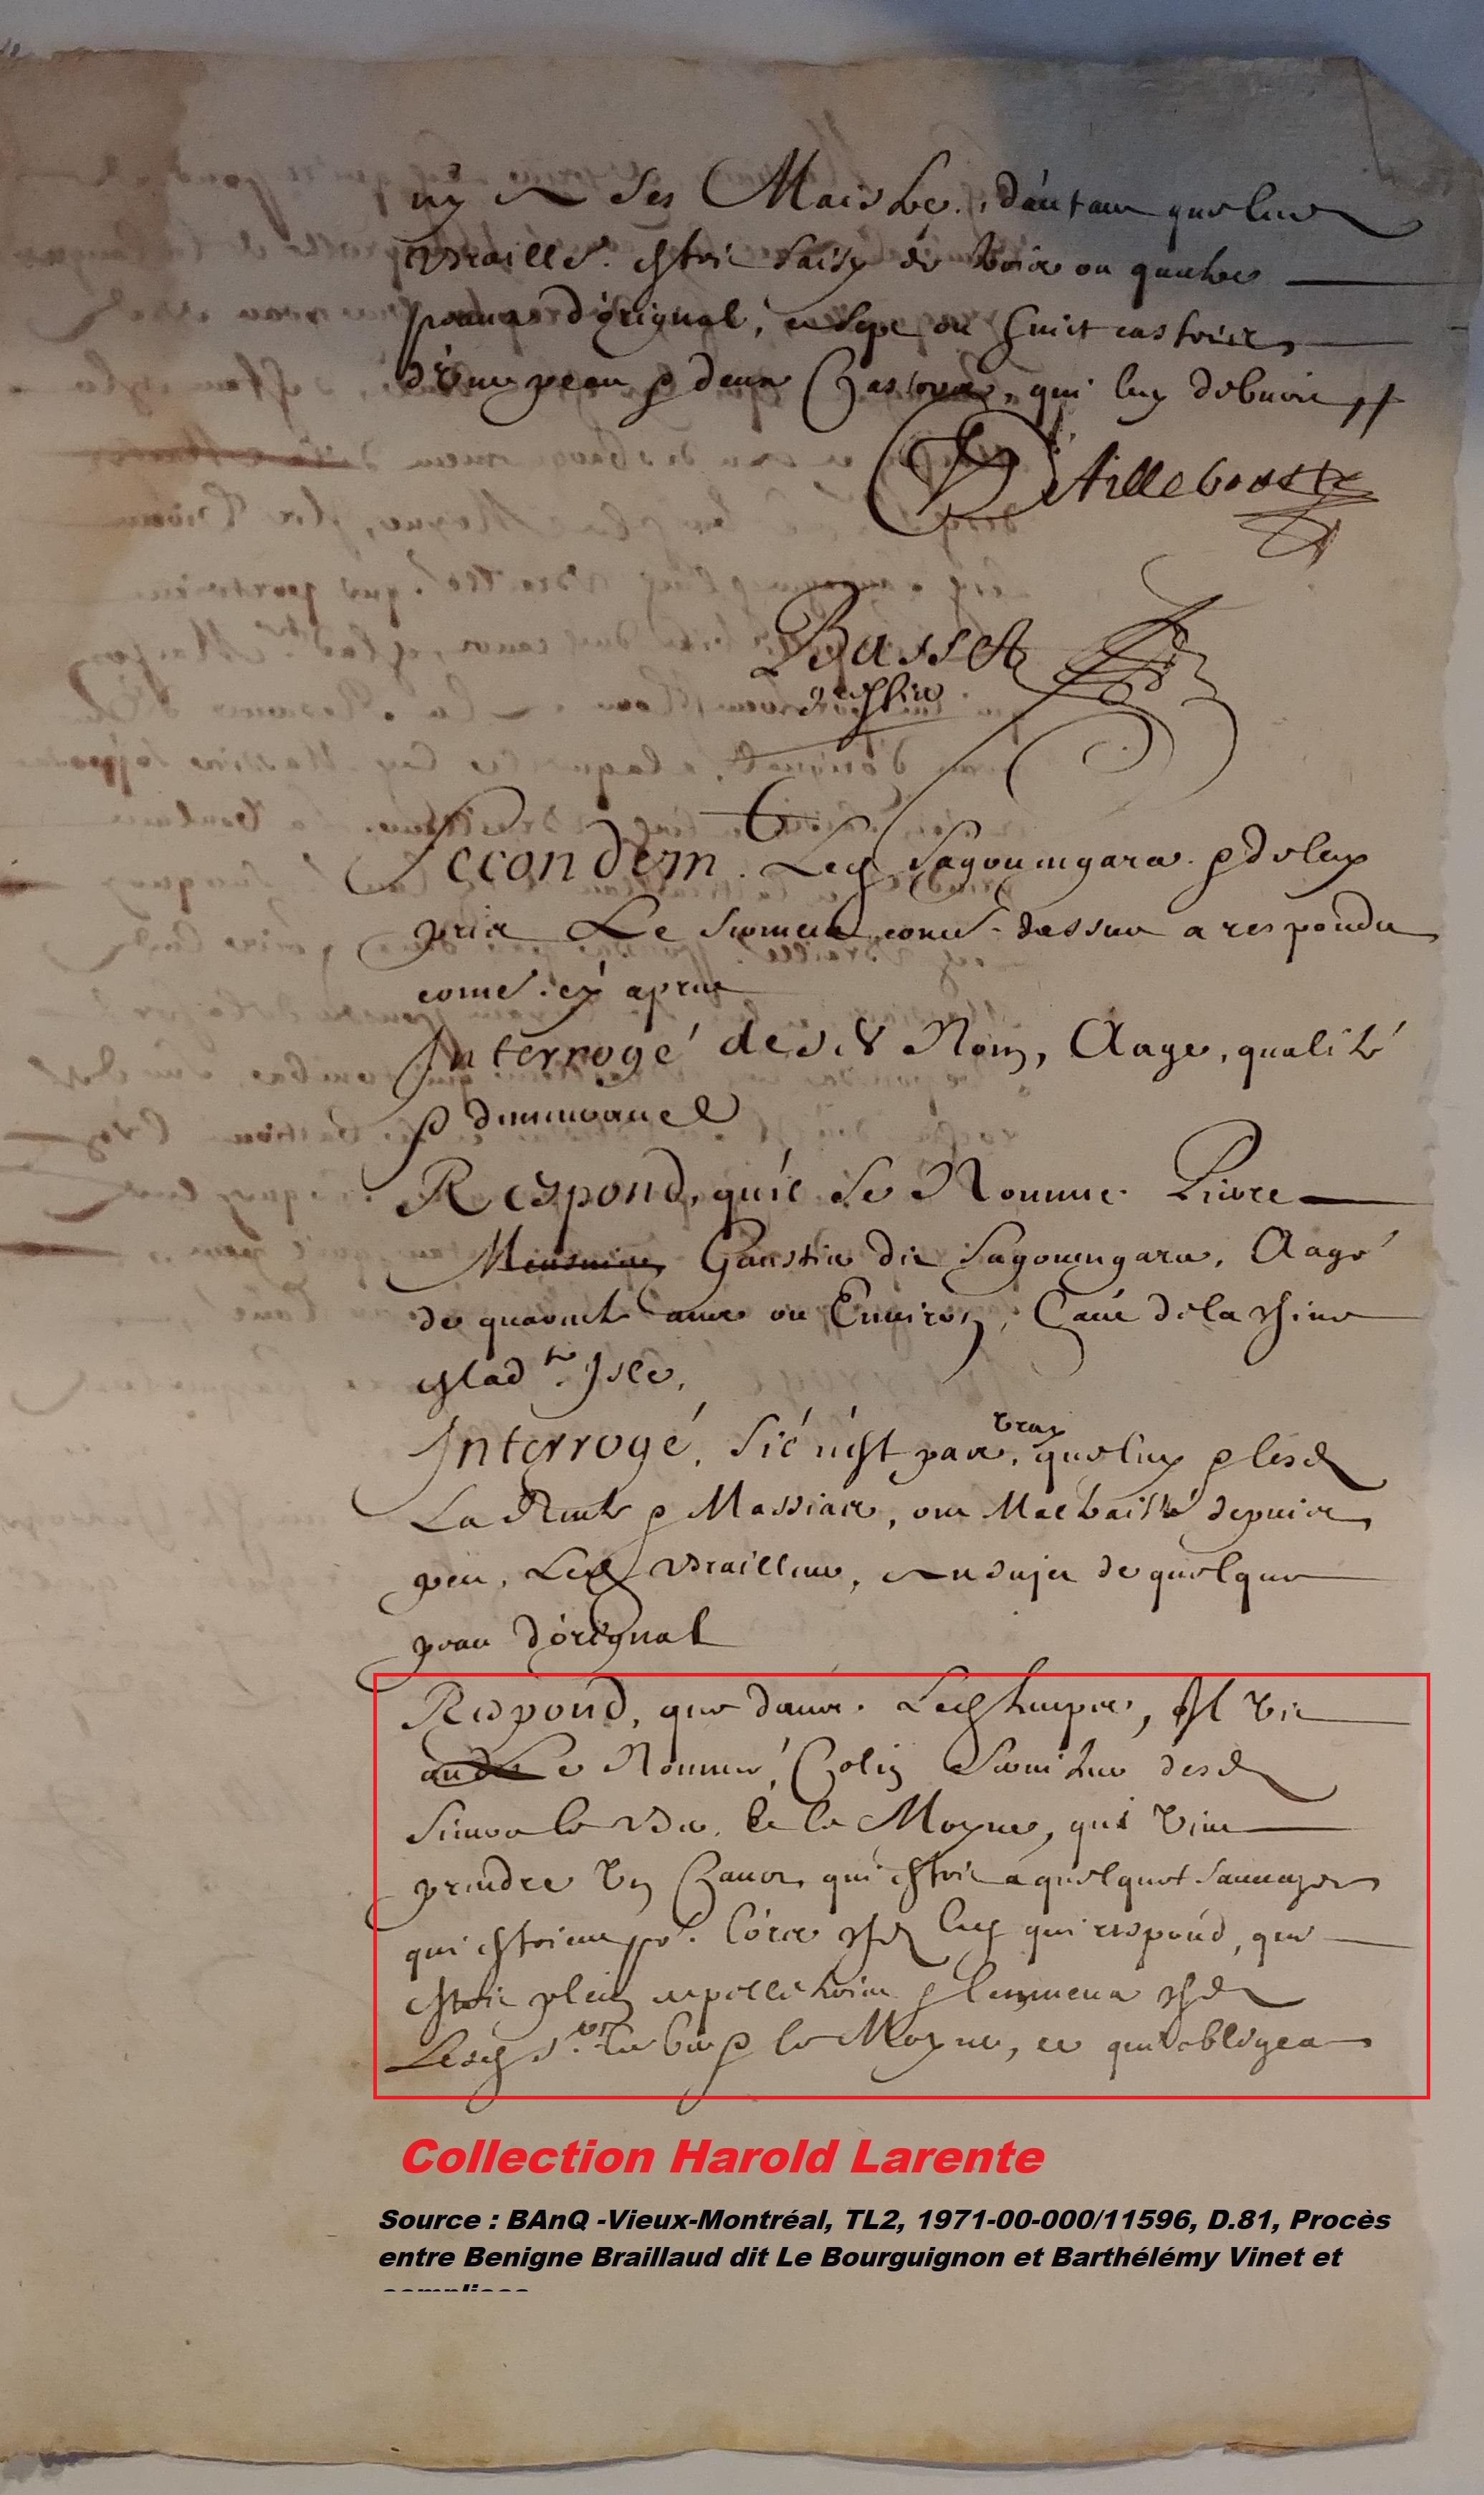 ny a ses Maistre. d'autant que led
Braille. estoit saisy de trois ou quatre
peaux d'orignal, et sept ou huict castors
d'une peau & deux Castors, qui luy debvoit
D'Ailleboust
Basset
greffier
Secondem. Led Sagouingara. & deluy
pris Le serment, come dessus a respondu
come cy apres
Interrogé de son Nom, Aage, qualité
& demeurance
Respond, qu'il se Nomme Pierre
Gaustie dit Sagouingara, Aagé
de quarante ans ou Environ, de la Chine
en lad.te Isle,
Interrogé, s'il n'est pas, vray que luy & lesd
La Rente & Massiac, ont Mal traicté depuis
peu, Led Braillau, au sujet de quelque
peau d'orignal
Respond, que dans. Led temps, Il vit
Le Nommé, Colin serviteur desd
sieurs le Ber. & le Moyne, qui vint
prendre Un Canot, qui estoit a quelques sauvages
qui estoient pour lors chez luy qui respond, que
estoit plein de pelleterie & l'emmena chez
Lesd Srs. le Ber & le Moyne, ce qui obligea
Collection Harold Larente
Source : BAnQ -Vieux-Montréal, TL2, 1971-00-000/11596, D.81, Procès
entre Benigne Braillaud dit Le Bourguignon et Barthélémy Vinet et